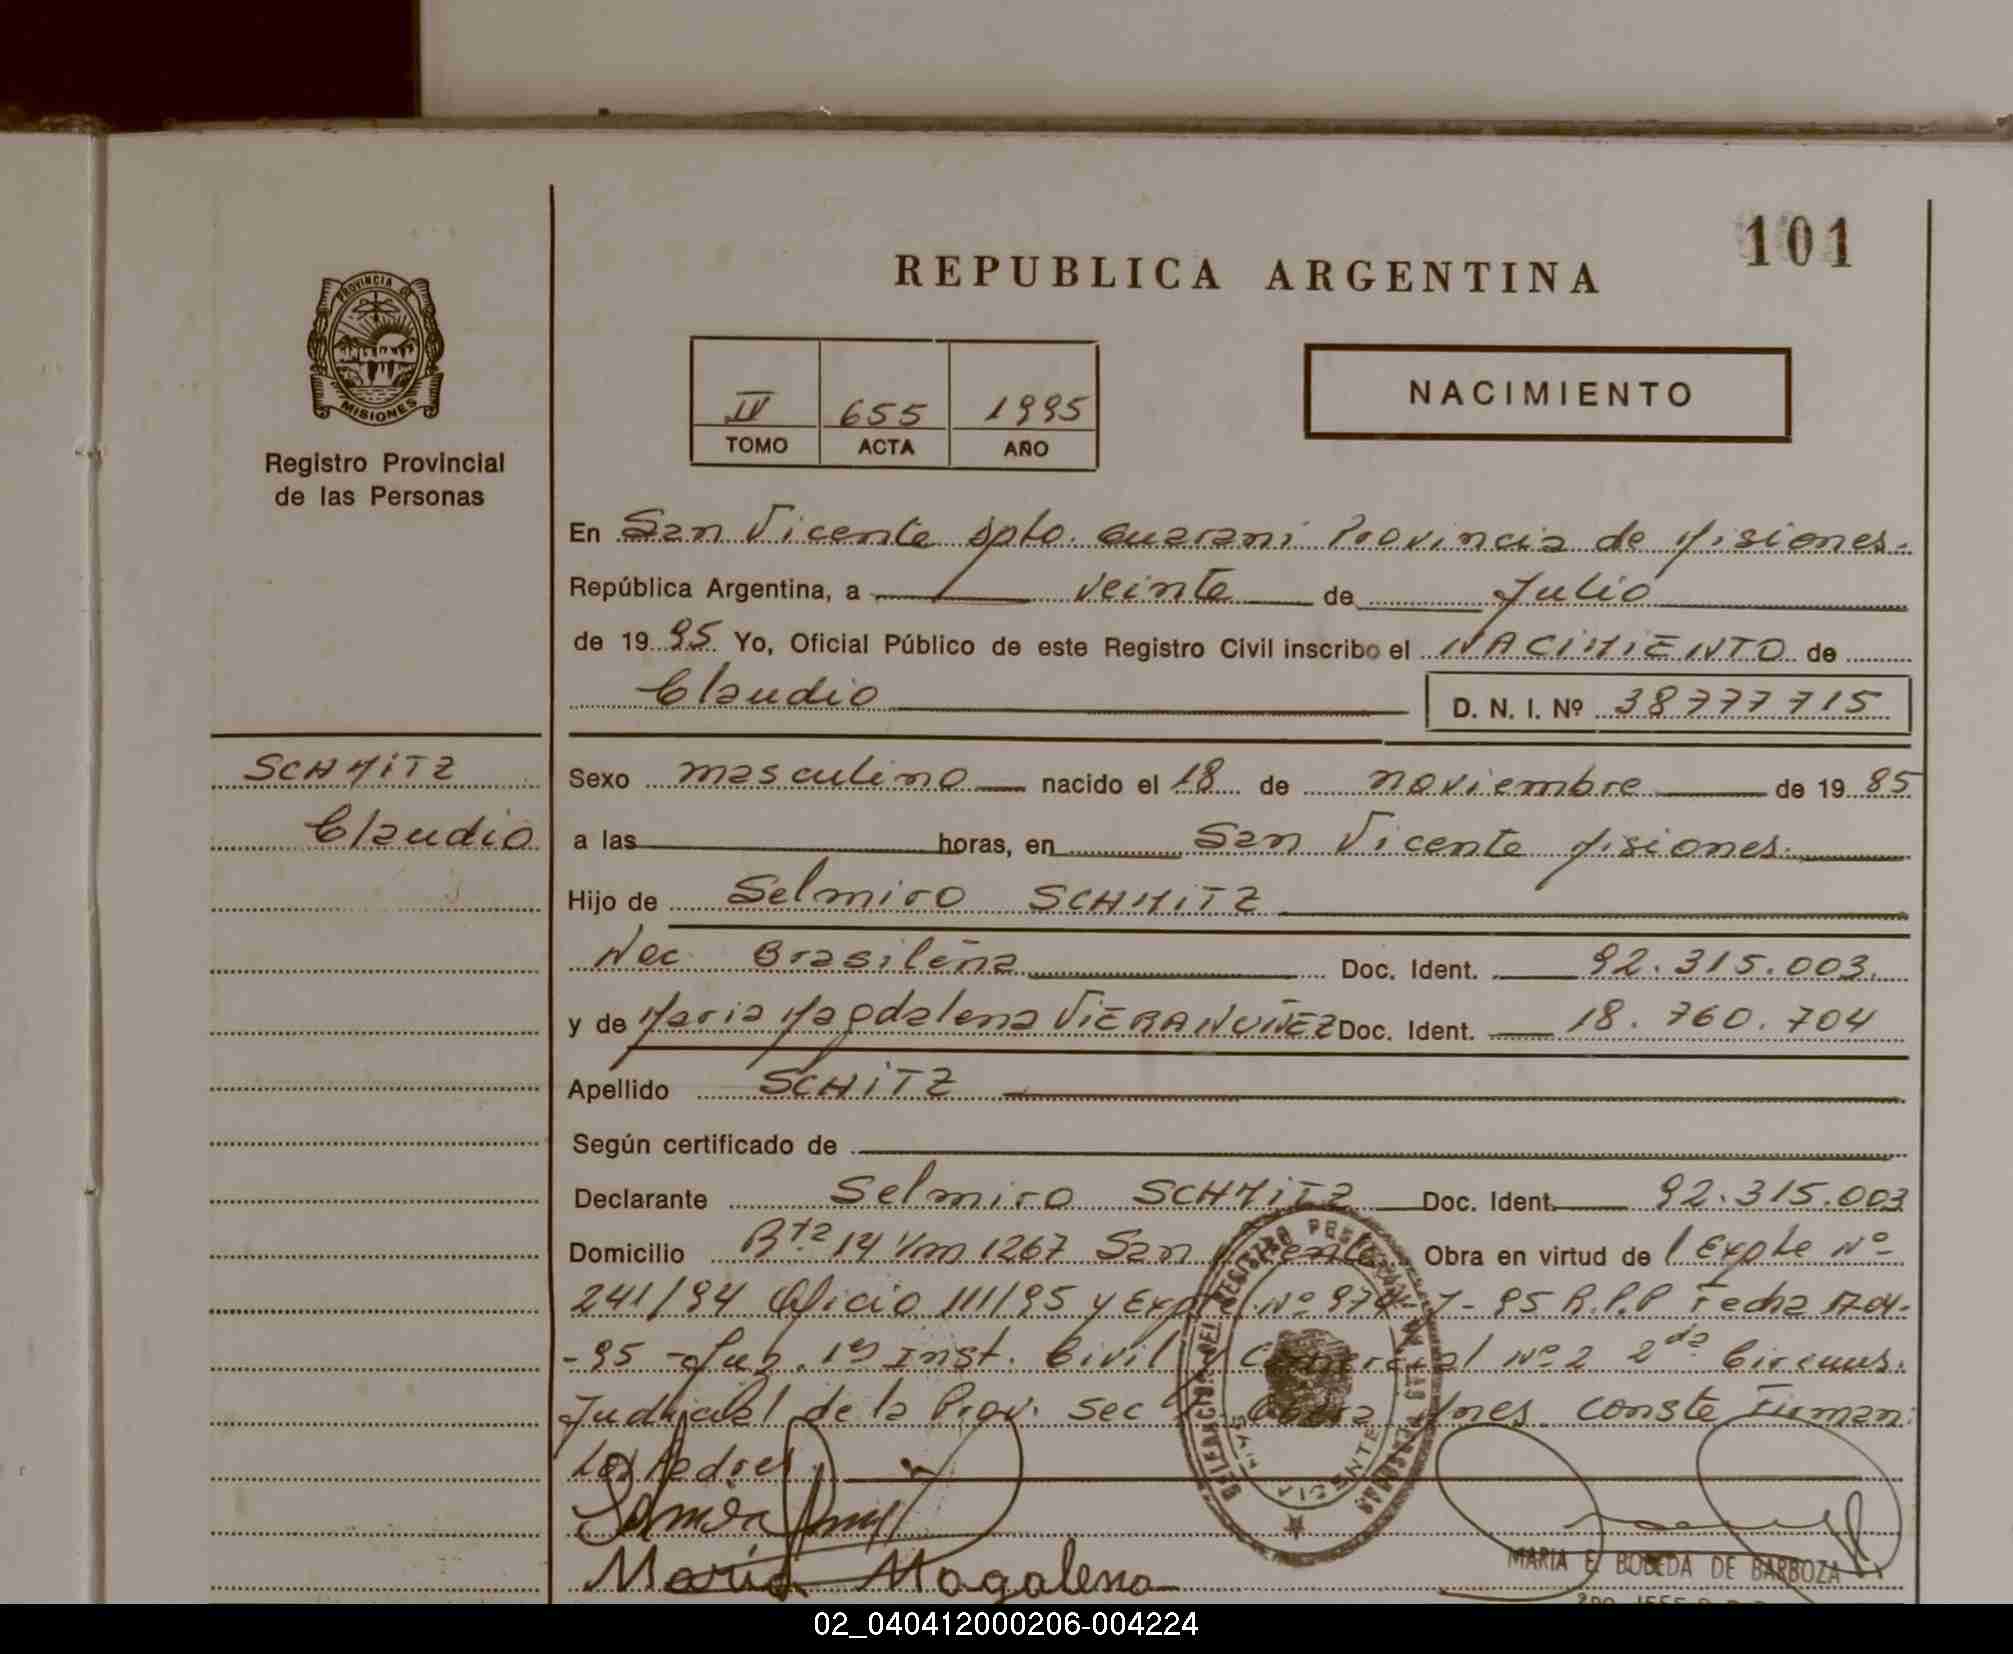 101
REPUBLICA ARGENTINA
PROVINCIA DE
MISIONES
Registro Provincial
de las Personas
IV 655 1995
TOMO ACTA AÑO
NACIMIENTO
En San Vicente Dpto. Guaraní Provincia de Misiones.
República Argentina, a veinte de Julio
de 1995 Yo, Oficial Público de este Registro Civil inscribo el NACIMIENTO de
Claudio D. N. I. Nº 38777715
SCHMITZ
Claudio
Sexo masculino nacido el 18 de noviembre de 1985
a las horas, en San Vicente Misiones.
Hijo de Selmiro SCHMITZ
Nac. Brasileña Doc. Ident. 92.315.003.
y de Maria Magdalena VIERA NUÑEZ Doc. Ident. 18.760.704
Apellido SCHITZ
Según certificado de
Declarante Selmiro SCHMITZ Doc. Ident. 92.315.003
Domicilio Rta 14 Km 1267 San Vicente Obra en virtud del Expte Nº
241/94 Oficio 111/95 y Expte Nº 95 R.P.P Fecha 17-04-
-95 - Juz. 1º Inst. Civil y Comercial Nº 2 2da Circuns.
Judicial de la Prov. Sec Mnes. conste Firman
Los Padres.
DELEGACION DEL REGISTRO PROVINCIAL DE LAS PERSONAS
SAN VICENTE
María Magalena
MARIA E. BOBEDA DE BARBOZA
02_040412000206-004224